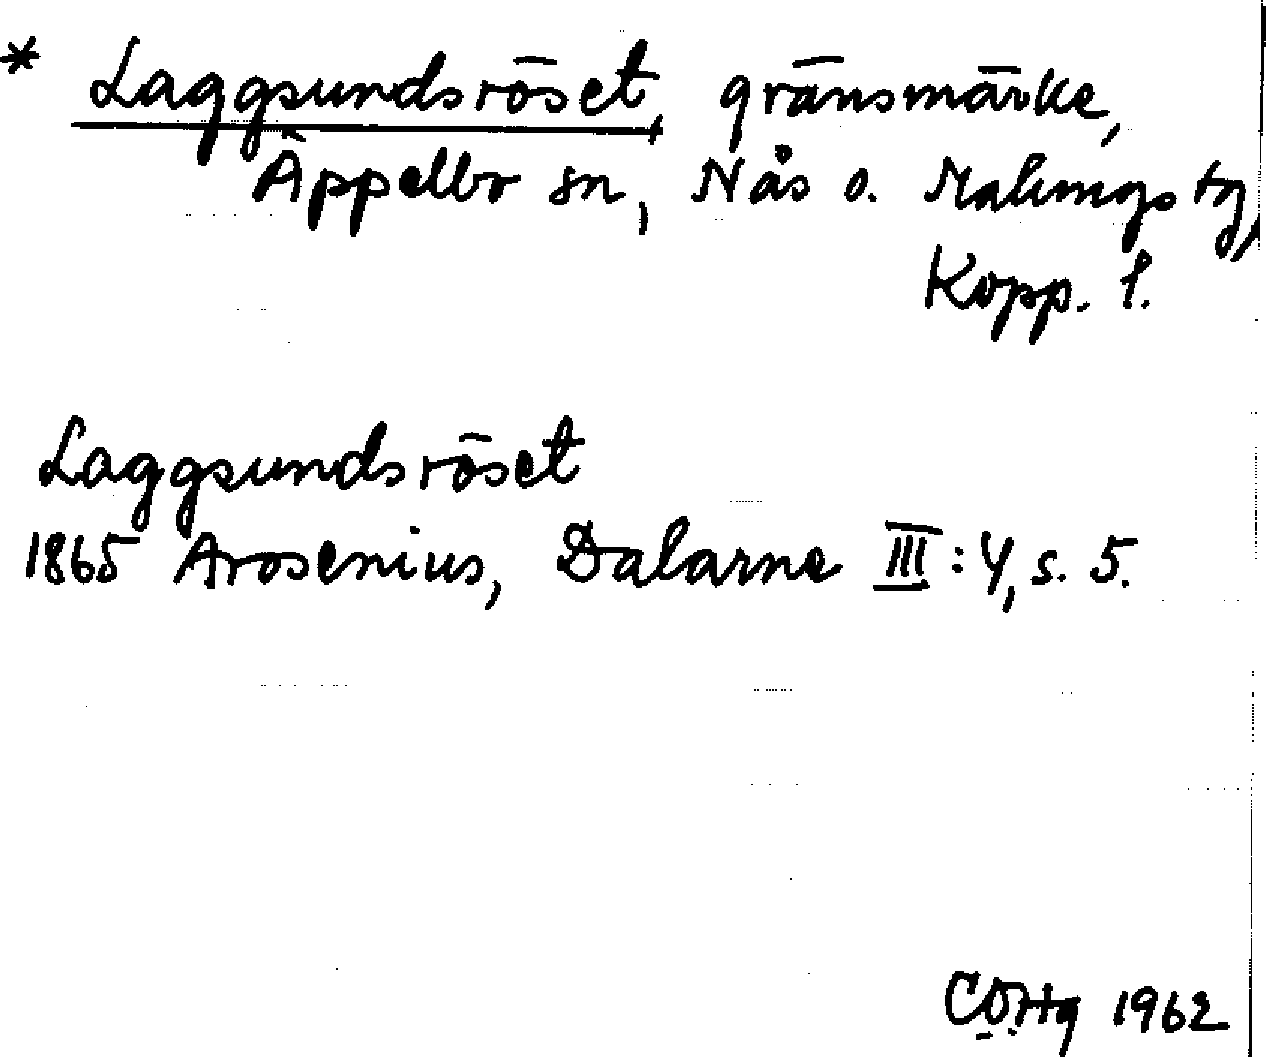 * Laggsundsröset, gränsmärke,
Äppelbo sn, Nås o. Malungs tg,
Kopp. l.
Laggsundsröset
1865 Arosenius, Dalarne III:4, s. 5.
1962